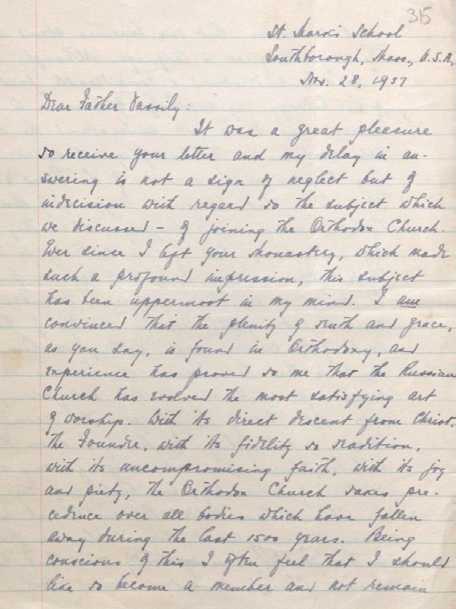 315
St. Mark's School
Southborough, Mass., U.S.A.
Nov. 28, 1937
Dear Father Vassily:
It was a great pleasure
to receive your letter and my delay in an-
swering is not a sign of neglect but of
indecision with regard to the subject which
we discussed – of joining the Orthodox Church.
Ever since I left your Monastery, which made
such a profound impression, this subject
has been uppermost in my mind. I am
convinced that the plenity of truth and grace,
as you say, is found in Orthodoxy, and
experience has proved to me that the Russian
Church has evolved the most satisfying art
of worship. With its direct descent from Christ,
the Founder, with its fidelity to tradition,
with its uncompromising faith, with its joy
and piety, the Orthodox Church takes pre-
cedence over all bodies which have fallen
away during the last 1500 years. Being
conscious of this I often feel that I should
like to become a member and not remain